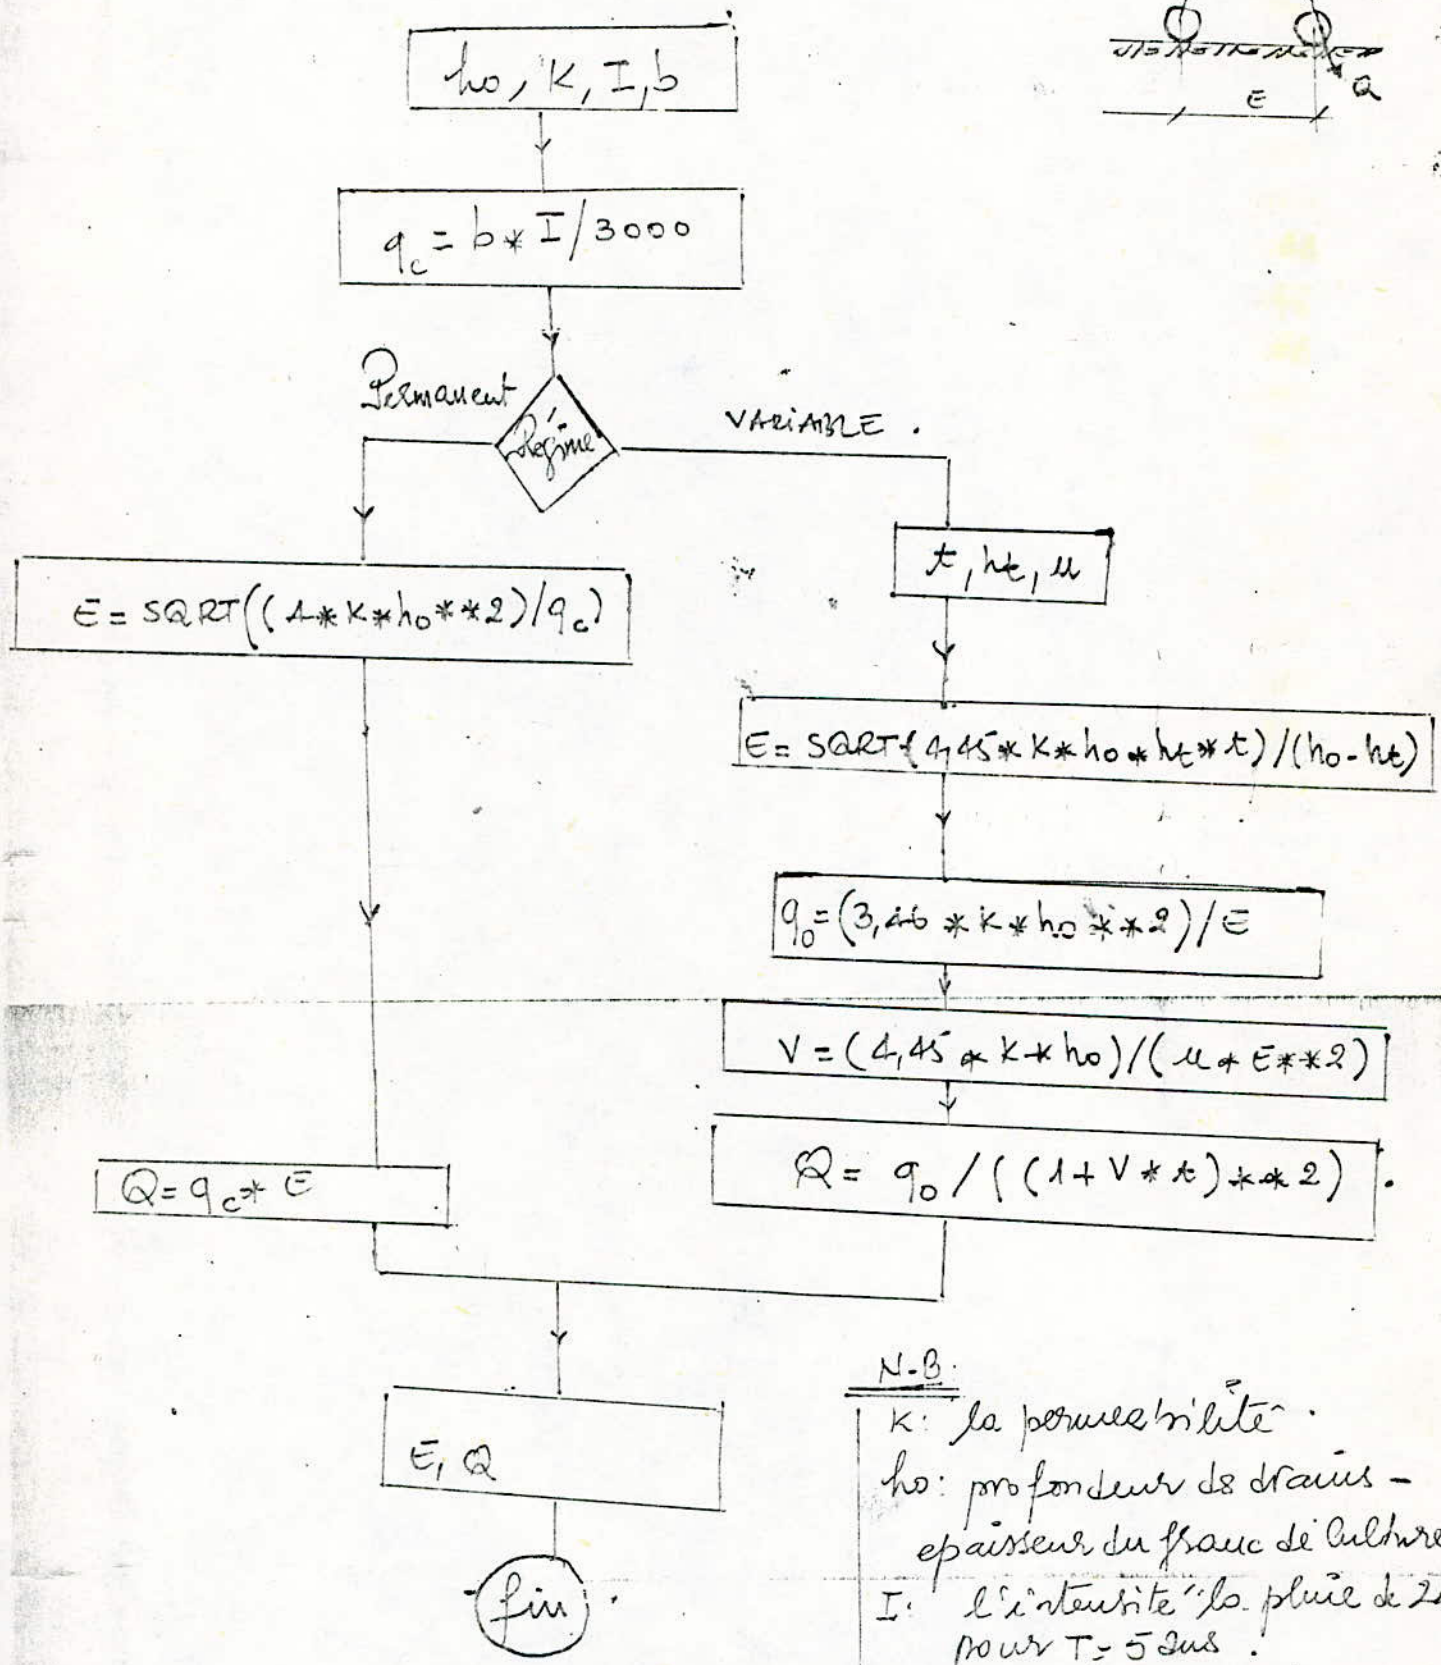 ho, K, I, b
Q
E
qc = b * I/3000
Permanent
Régime
VARIABLE.
t, ht, u
E = SQRT((4*K*ho**2)/qc)
E = SQRT(4,45*K*ho*ht*t)/(ho-ht)
q0 = (3,46*K*ho**2)/E
V = (4,45*K*ho)/(u*E**2)
Q = qc*E
Q = q0/((1+V*t)**2).
E, Q
fin
N-B:
K: la perméabilité.
ho: profondeur ds drains -
epaisseur du franc de culture
I: l'intensité la pluie de
pour T= 5 ans.